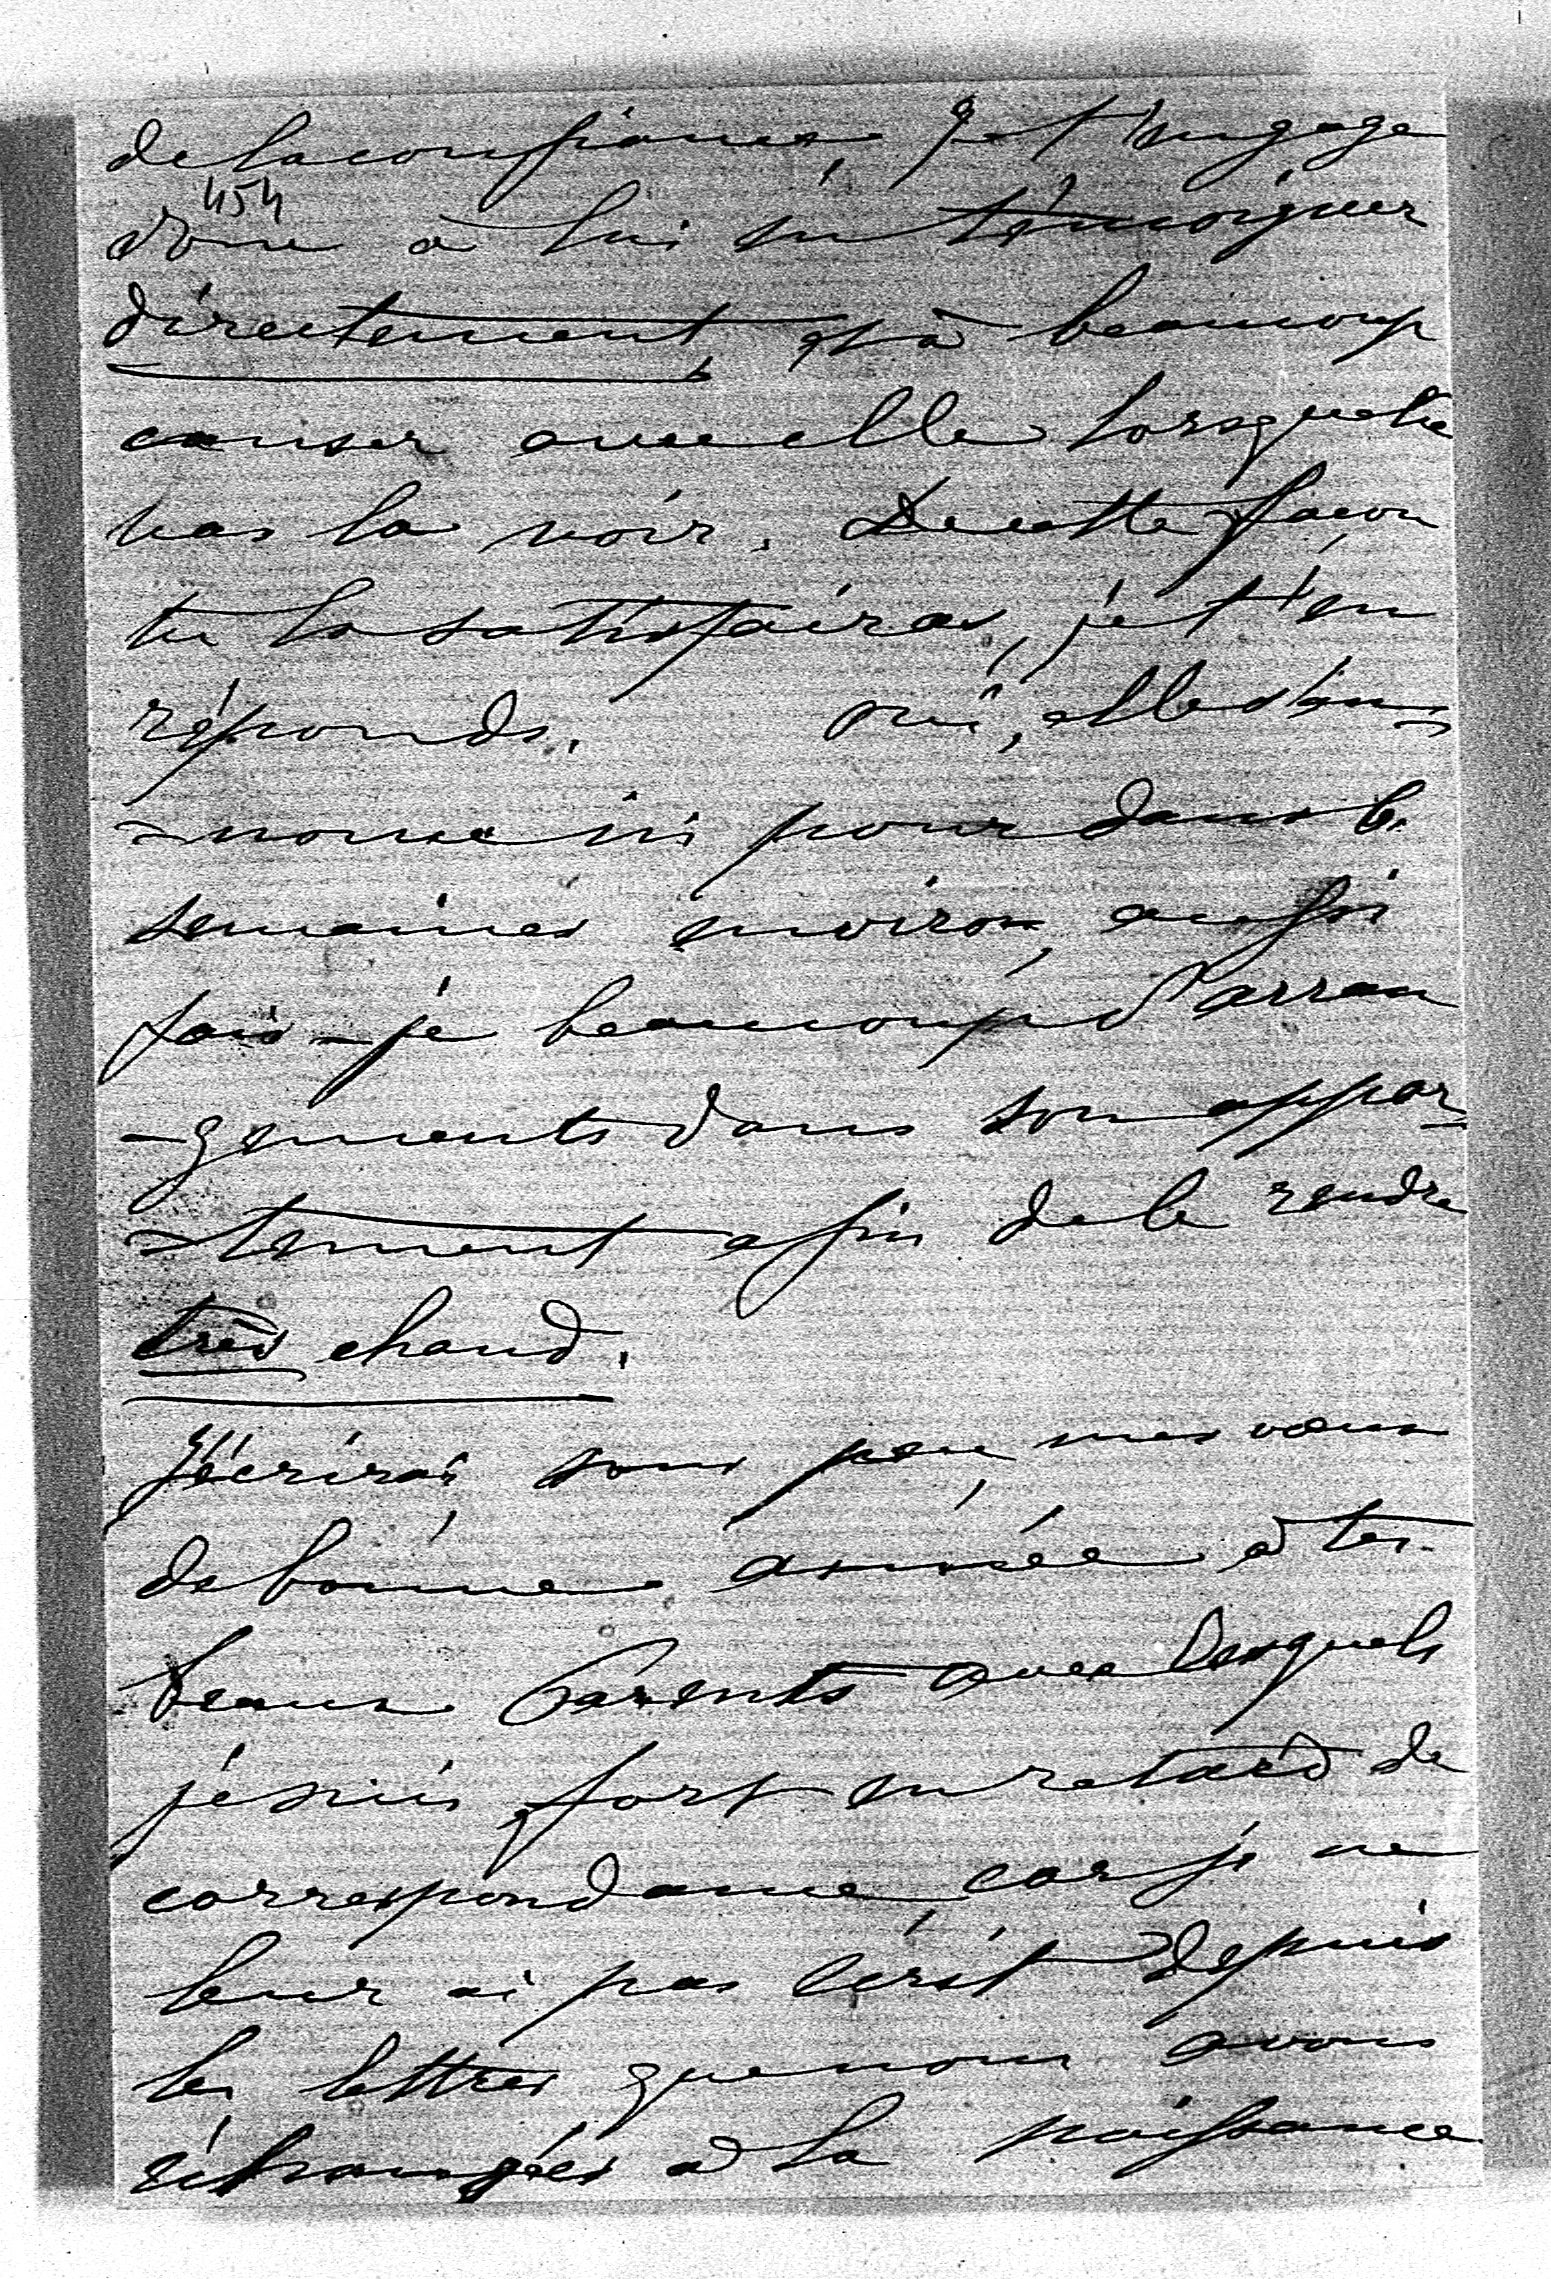 de la confiance, je t'engage
454
donc à lui en témoigner
directement, et à beaucoup
causer avec elle lorsque tu
vas la voir. De cette façon
tu la satisfairas, je t'en
réponds. Oui, elle s'en
nonce ici pour dans 6
semaines environ, aussi
fais-je beaucoup d'arran
-gements dans son appar-
-tement afin de le rendre
très chaud.
J'écrirai, sous peu, mes vœux
de bonne année à tes
beaux Parents avec lesquels
je suis fort en retard de
correspondance, car je ne
leur ai pas écrit depuis
les lettres que nous avons
échangées à la naissance